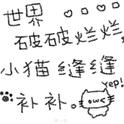 世界
破破烂烂
小猫缝缝
yep!
补补。